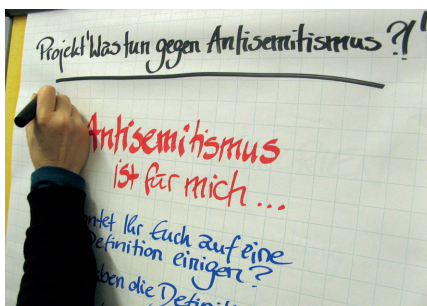 Projekt "Was tun gegen Antisemitismus?!"
Antisemitismus
ist für mich...
Ihr Euch auf eine
Definition einigen?
die